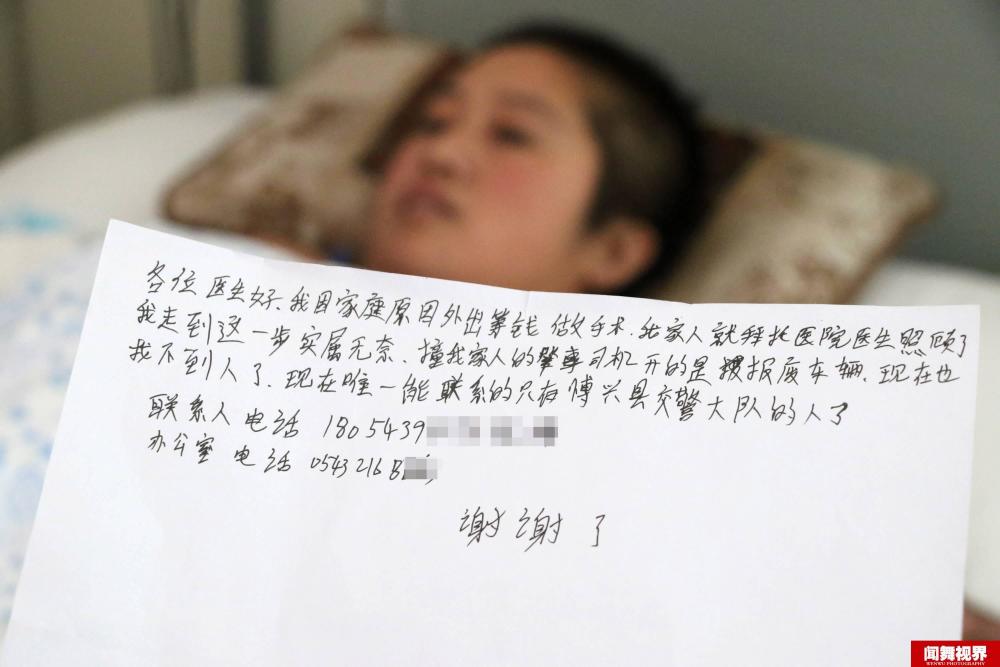 各位医生好、我因家庭原因外出筹钱做手术.我家人就拜托医院医生照顾了
我走到这一步实属无奈、撞我家人的肇事司机开的是报废车辆.现在也
找不到人了、现在唯一能联系的只有博兴县交警大队的人了
联系人电话 1805439
办公室电话 05432168
谢谢了
闻舞视界
WENWU PHOTOGRAPHY